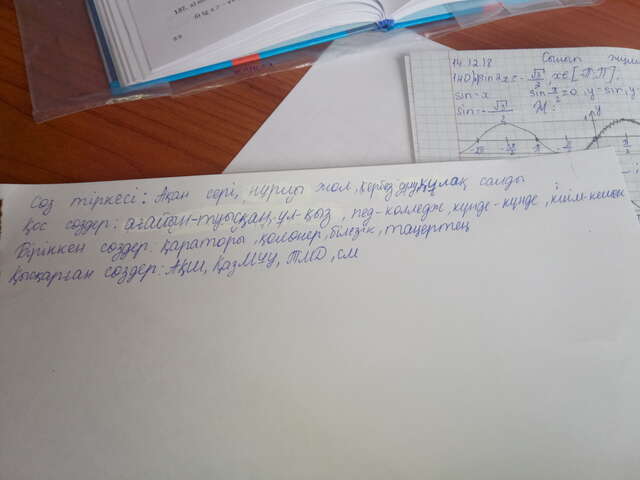 14.12.18
x∈[-π;π]
sin=x
Сөз тіркесі: Ақан сері, нұрлы жол, құлақ салды
Қос сөздер: ағайын-туысқан, ұл-қыз, пед-колледж, күнде-күнде, киім-кешек
Біріккен сөздер: қараторы, қолөнер, білезік, таңертең
Қысқарған сөздер: АҚШ, ҚазМУУ, ТМД, см